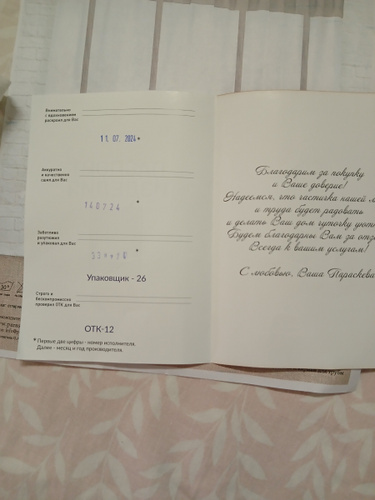 Внимательно
с вдохновением
раскроил для Вас
11. 07. 2024*
Аккуратно
и качественно
сшил для Вас
140724 *
Заботливо
разутюжил
и упаковал для Вас
Упаковщик - 26
Строго и
бескомпромиссно
проверил ОТК для Вас
ОТК-12
* Первые две цифры - номер исполнителя.
Далее - месяц и год производителя.
Благодарим за покупку
и Ваше доверие!
Надеемся, что частичка нашей
и труда будет радовать
и делать Ваш дом чуточку
Будем благодарны Вам за
Всегда к вашим услугам!
С любовью, Ваша Параскева